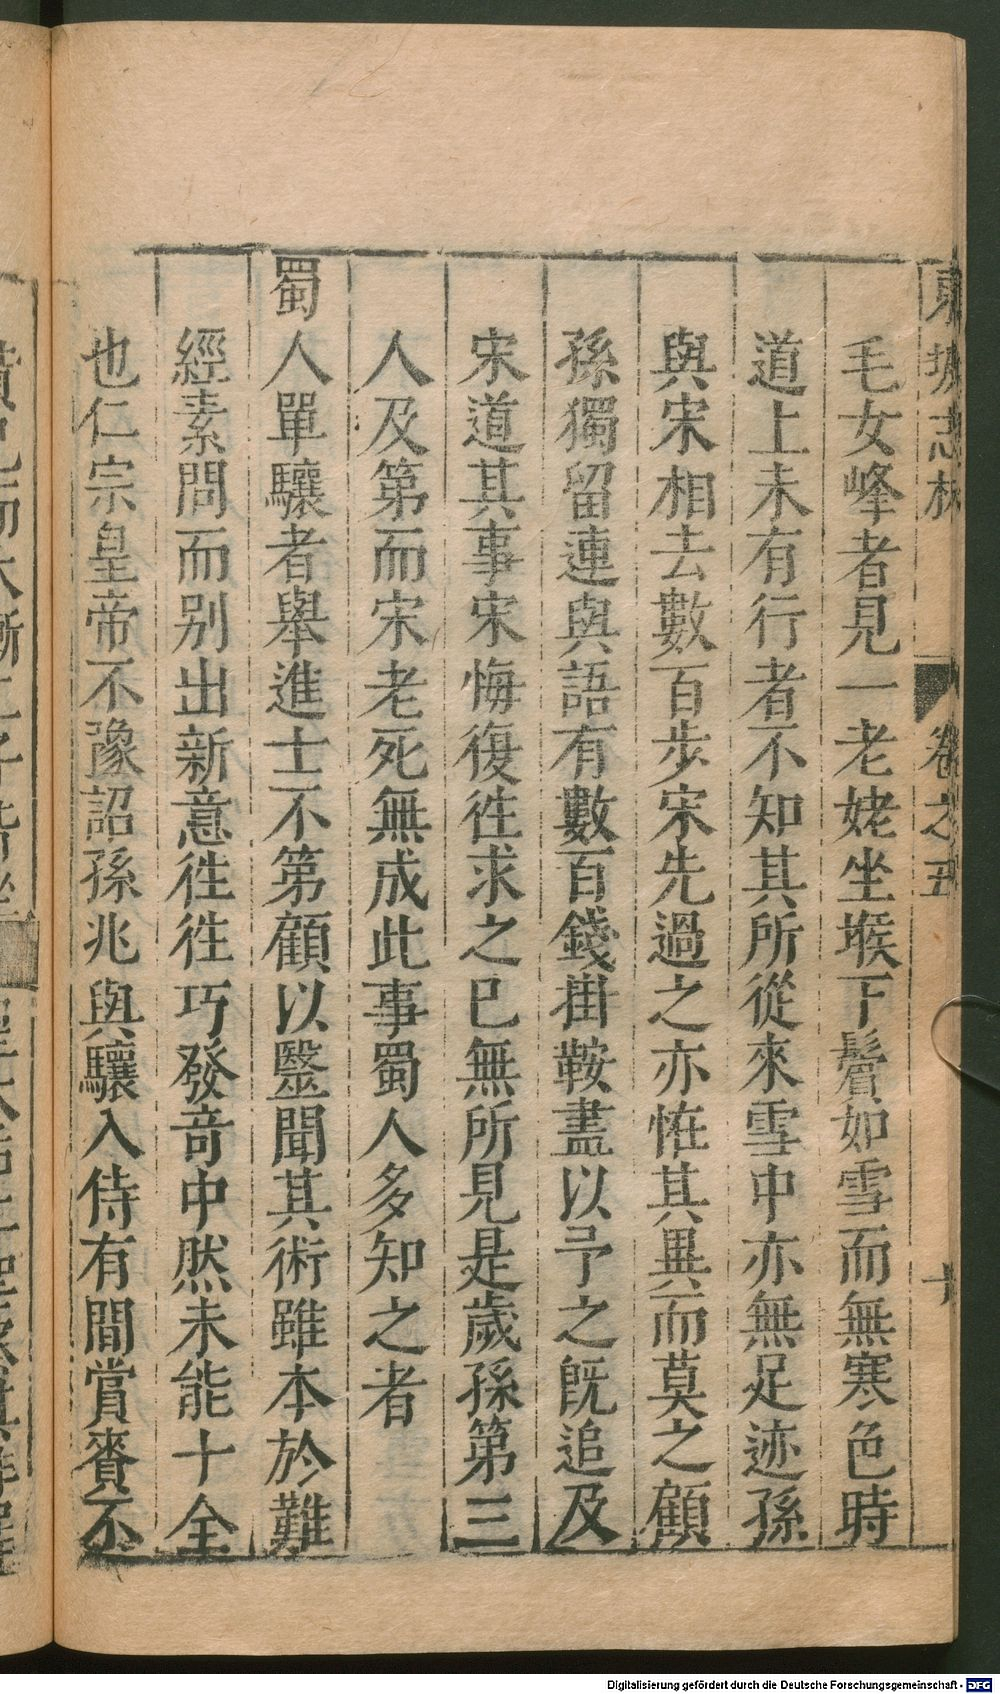 東坡志林 卷之五 十
毛女峰者見一老姥坐堠下鬢如雪而無寒色時
道上未有行者不知其所從來雪中亦無足迹孫
與宋相去數百步宋先過之亦恠其異而莫之顧
孫獨留連與語有數百錢掛鞍盡以予之旣追及
宋道其事宋悔復徃求之已無所見是歲孫第三
人及第而宋老死無成此事蜀人多知之者
蜀人單驤者舉進士不第顧以毉聞其術雖本於難
經素問而别出新意徃徃巧發竒中然未能十全
也仁宗皇帝不豫詔孫兆與驤入侍有間賞賚不
Digitalisierung gefördert durch die Deutsche Forschungsgemeinschaft - DFG